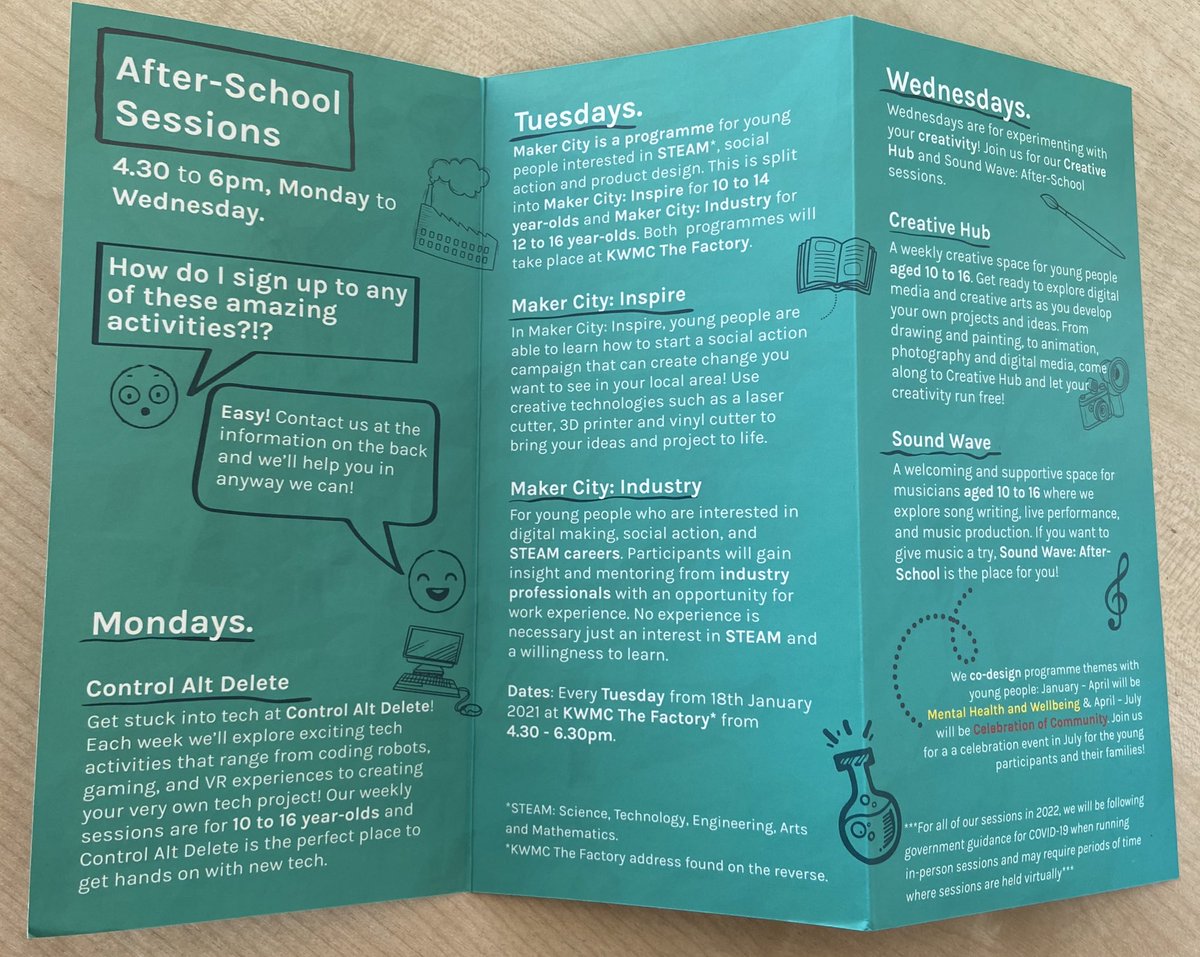 After-School
Sessions
4.30 to 6pm, Monday to
Wednesday.
How do I sign up to any
of these amazing
activities?!?
Easy! Contact us at the
information on the back
and we'll help you in
anyway we can!
Mondays.
Control Alt Delete
Get stuck into tech at Control Alt Delete!
Each week we'll explore exciting tech
activities that range from coding robots,
gaming, and VR experiences to creating
your very own tech project! Our weekly
sessions are for 10 to 16 year-olds and
Control Alt Delete is the perfect place to
get hands on with new tech.
Tuesdays.
Maker City is a programme for young
people interested in STEAM*, social
action and product design. This is split
into Maker City: Inspire for 10 to 14
year-olds and Maker City: Industry for
12 to 16 year-olds. Both programmes will
take place at KWMC The Factory.
Maker City: Inspire
In Maker City: Inspire, young people are
able to learn how to start a social action
campaign that can create change you
want to see in your local area! Use
creative technologies such as a laser
cutter, 3D printer and vinyl cutter to
bring your ideas and project to life.
Maker City: Industry
For young people who are interested in
digital making, social action, and
STEAM careers. Participants will gain
insight and mentoring from industry
professionals with an opportunity for
work experience. No experience is
necessary just an interest in STEAM and
a willingness to learn.
Dates: Every Tuesday from 18th January
2021 at KWMC The Factory* from
4.30 - 6.30pm.
*STEAM: Science, Technology, Engineering, Arts
and Mathematics.
*KWMC The Factory address found on the reverse.
Wednesdays.
Wednesdays are for experimenting with
your creativity! Join us for our Creative
Hub and Sound Wave: After-School
sessions.
Creative Hub
A weekly creative space for young people
aged 10 to 16. Get ready to explore digital
media and creative arts as you develop
your own projects and ideas. From
drawing and painting, to animation,
photography and digital media, come
along to Creative Hub and let your
creativity run free!
Sound Wave
A welcoming and supportive space for
musicians aged 10 to 16 where we
explore song writing, live performance,
and music production. If you want to
give music a try, Sound Wave: After-
School is the place for you!
We co-design programme themes with
young people: January - April will be
Mental Health and Wellbeing & April - July
will be Celebration of Community. Join us
for a a celebration event in July for the young
participants and their families!
***For all of our sessions in 2022, we will be following
government guidance for COVID-19 when running
in-person sessions and may require periods of time
where sessions are held virtually***